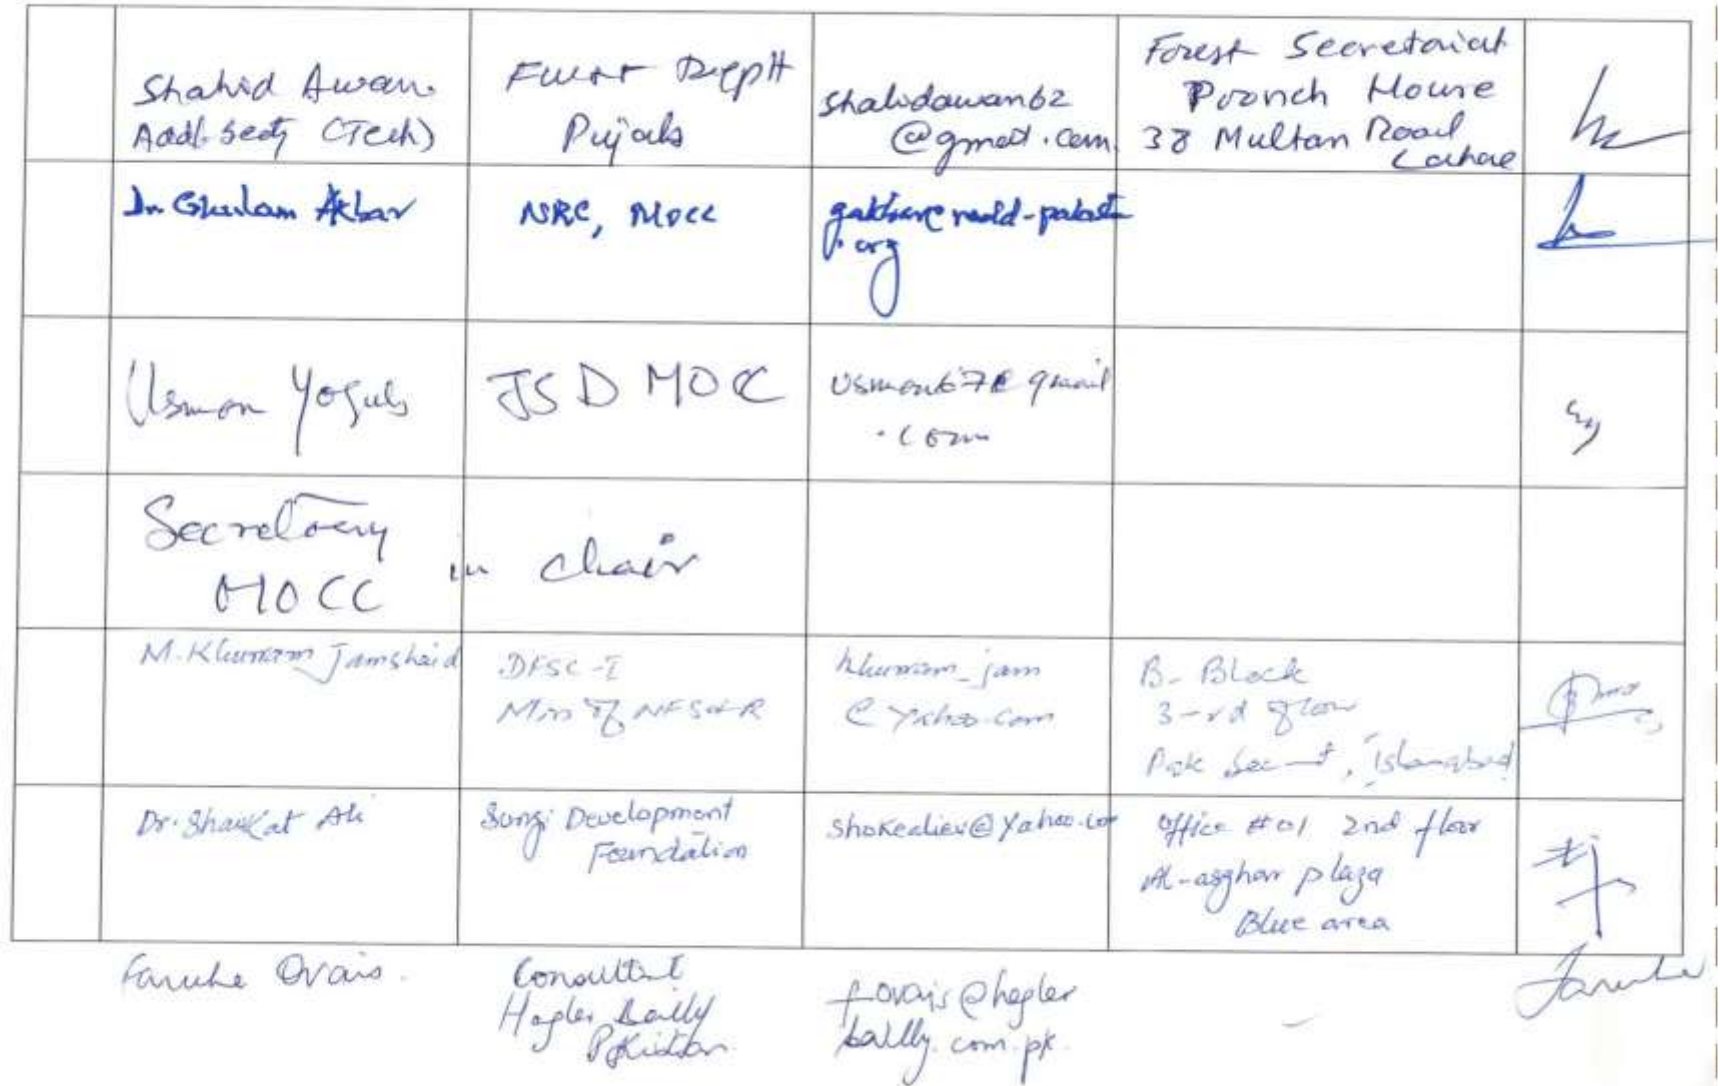 Shahid Awan
Addl. Secty (Tech)
Forest Deptt
Punjab
shahidawan62
@gmail.com
Forest Secretariat
Poonch House
38 Multan Road
Lahore
Dr. Ghulam Akbar
NRC, MOCC
.org
Usman
JSD MOCC
usman67@gmail
.com
Secretary
MOCC
in chair
M. Khurram Jamshaid
DFSC-I
Min of NFS&R
khurram_jam
@yahoo.com
B-Block
3-rd floor
Pak Sect, Islamabad
Dr. Shaukat Ali
Sungi Development
Foundation
Office #01 2nd floor
Al-asghar plaza
Blue area
Faruke Ovais.
Consultant
Hagler Bailly
Pakistan
fovais@hagler
bailly.com.pk.